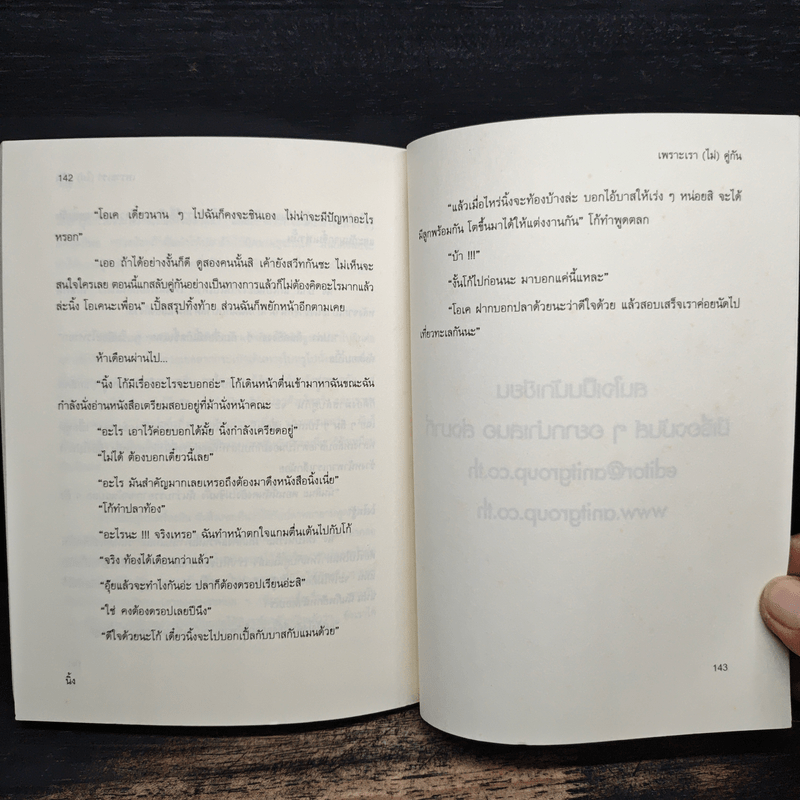 142
“โอเค เดี๋ยวนาน ๆ ไปฉันก็คงจะชินเอง ไม่น่าจะมีปัญหาอะไร
หรอก”
“เออ ถ้าได้อย่างงั้นก็ดี ดูสองคนนั้นสิ เค้ายังสวีทกันซะ ไม่เห็นจะ
สนใจใครเลย ตอนนี้แกสลับคู่กันอย่างเป็นทางการแล้วก็ไม่ต้องคิดอะไรมากแล้ว
ล่ะนิ้ง โอเคนะเพื่อน” เปิ้ลสรุปทิ้งท้าย ส่วนฉันก็พยักหน้าอีกตามเคย
ห้าเดือนผ่านไป...
“นิ้ง โก้มีเรื่องอะไรจะบอกอ่ะ” โก้เดินหน้าตื่นเข้ามาหาฉันขณะฉัน
กำลังนั่งอ่านหนังสือเตรียมสอบอยู่ที่ม้านั่งหน้าคณะ
“อะไร เอาไว้ค่อยบอกได้มั้ย นิ้งกำลังเครียดอยู่”
“ไม่ได้ ต้องบอกเดี๋ยวนี้เลย”
“อะไร มันสำคัญมากเลยเหรอถึงต้องมาดึงหนังสือนิ้งเนี่ย”
“โก้ทำปลาท้อง”
“อะไรนะ !!! จริงเหรอ” ฉันทำหน้าตกใจแกมตื่นเต้นไปกับโก้
“จริง ท้องได้เดือนกว่าแล้ว”
“อุ๊ยแล้วจะทำไงกันอ่ะ ปลาก็ต้องดรอปเรียนอ่ะสิ”
“ใช่ คงต้องดรอปเลยปีนึง”
“ดีใจด้วยนะโก้ เดี๋ยวนิ้งจะไปบอกเปิ้ลกับบาสกับแมนด้วย”
นิ้ง
เพราะเรา (ไม่) คู่กัน
“แล้วเมื่อไหร่นิ้งจะท้องบ้างล่ะ บอกไอ้บาสให้เร่ง ๆ หน่อยสิ จะได้
มีลูกพร้อมกัน โตขึ้นมาได้ให้แต่งงานกัน” โก้ทำพูดตลก
“บ้า !!!”
“งั้นโก้ไปก่อนนะ มาบอกแค่นี้แหละ”
“โอเค ฝากบอกปลาด้วยนะว่าดีใจด้วย แล้วสอบเสร็จเราค่อยนัดไป
เที่ยวทะเลกันนะ”
143